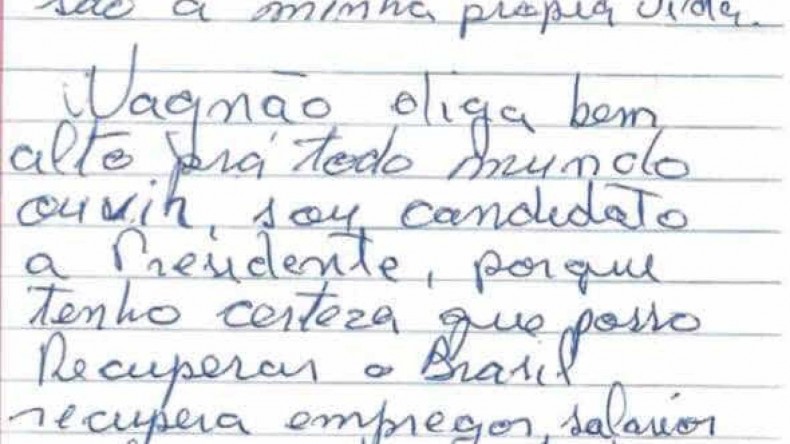 são a minha própia vida.
Wagnão diga bem
alto prá todo mundo
ouvir, sou candidato
a Presidente, porque
tenho certeza que posso
Recuperar o Brasil
recupera empregos, salários